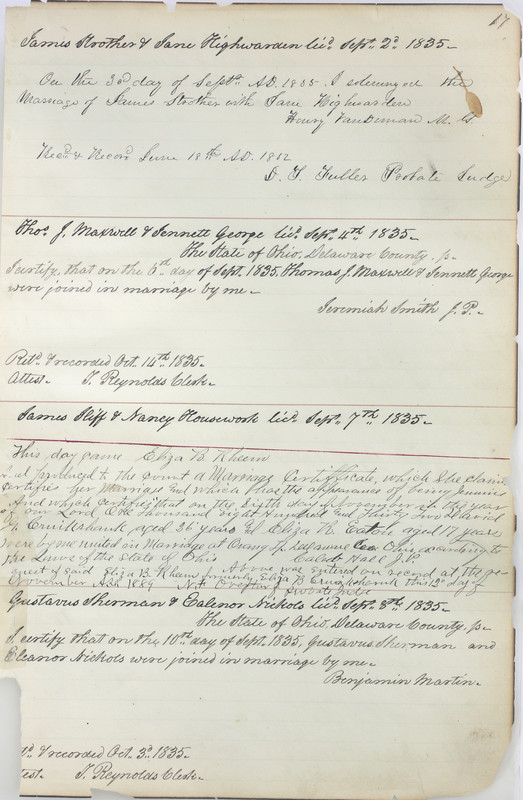 17
James Strother & Jane Highwarden lic'd Sept. 2d 1835.
On the 3d day of Sept. A.D. 1835 I solemnized the
Marriage of James Strother with Jane Highwarden
Henry Vandeman M. G.
Rec'd & Record June 18th A.D. 1862
D. T. Fuller Probate Judge
Thos. J. Maxwell & Jennett George lic'd Sept. 4th 1835.
The State of Ohio, Delaware County, ss.
I certify, that on the 6th day of Sept. 1835, Thomas J. Maxwell & Jennett George
were joined in marriage by me.
Jeremiah Smith J. P.
Ret'd & recorded Oct. 14th 1835.
Attest. T. Reynolds Clerk.
James Sliff & Nancy Housework lic'd Sept. 7th 1835.
This day came Eliza B. Rheem
and produced to the court a Marriage Certificate, which she claims
certifies her Marriage and which has the appearance of being genuine
And which certifies that on the Sixth day of in the year
of our Lord One thousand eight hundred and thirty David
Cruikshank aged 26 years & Eliza B. Eaton aged 17 years
were by me united in Marriage at Orang Tp. Delaware Co. Ohio, according to
the Laws of the State of Ohio Caleb Hall J.P.
Above was entered on record at the re-
quest of said Eliza B. Rheem formerly Eliza B. Cruikshank this 12 day of
November A.D. 1889 Probate Judge
Gustavus Sherman & Ealenor Nichols lic'd Sept. 8th 1835.
The State of Ohio, Delaware County, ss.
I certify that on the 10th day of Sept. 1835, Gustavus Sherman and
Eleanor Nichols were joined in marriage by me.
Benjamin Martin.
& recorded Oct. 3d 1835.
T. Reynolds Clerk.